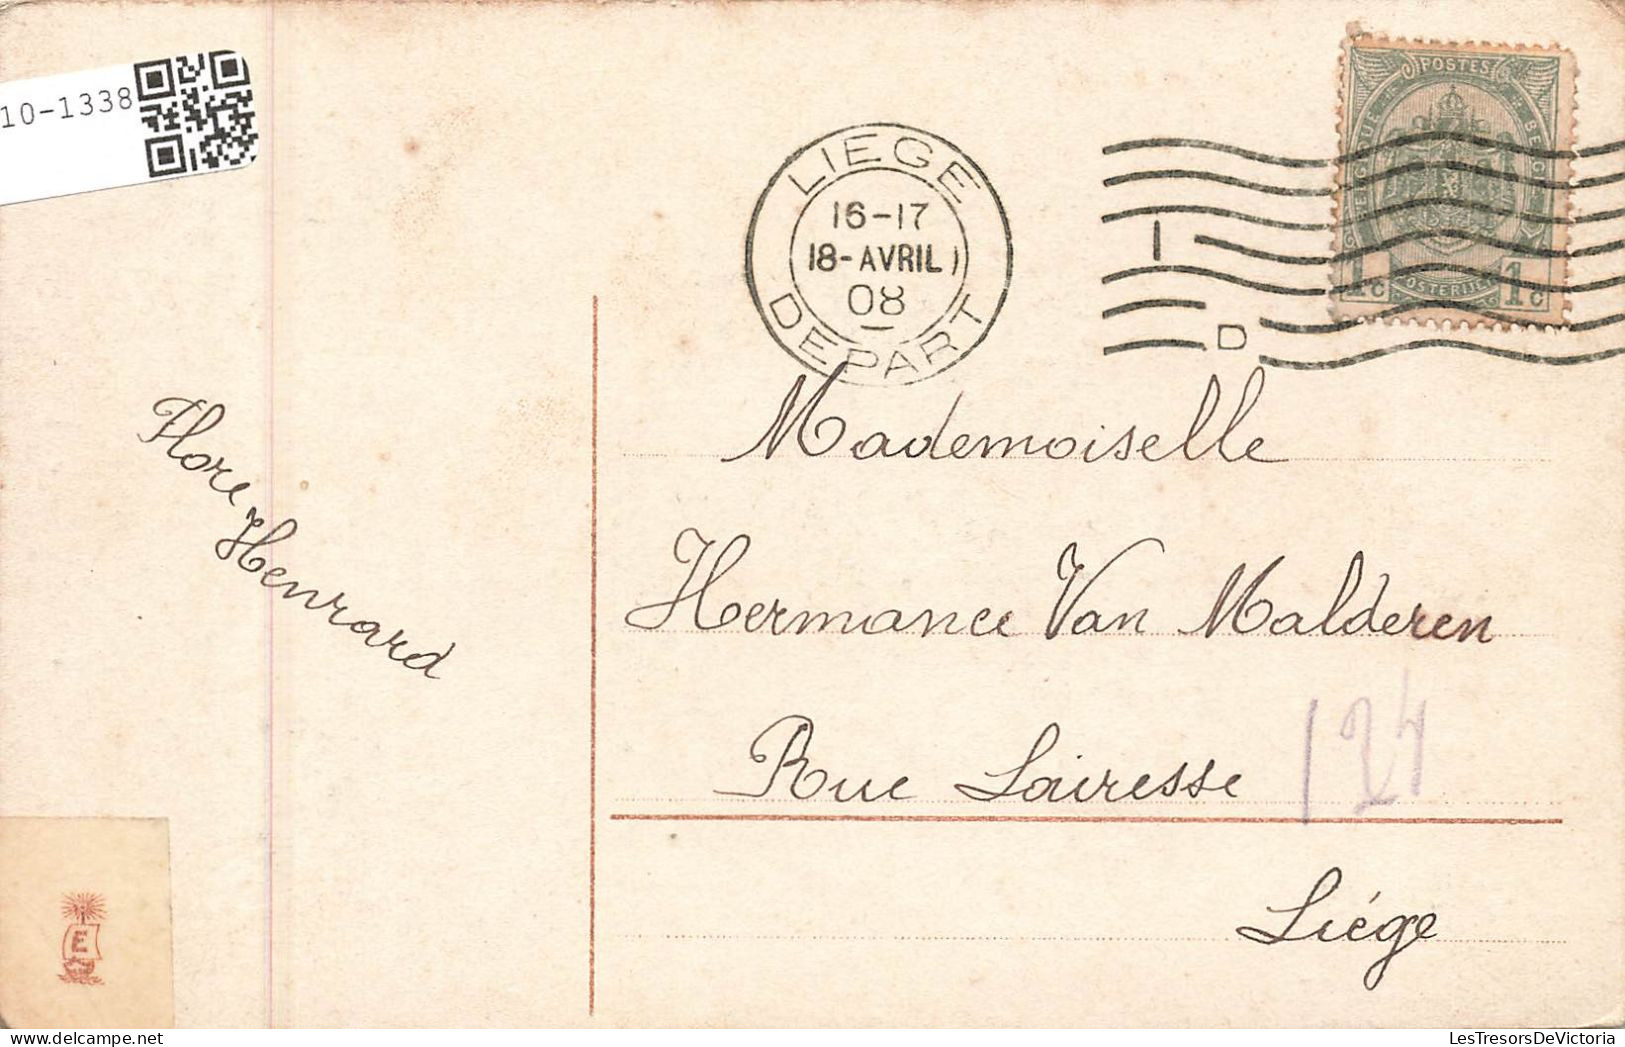 10-1338
LIEGE
16-17
18-AVRIL
08
DEPART
1
D
POSTES
BELGIQUE
BELGIË
POSTERIJEN
1c 1c
Flore Henrard
Mademoiselle
Hermance Van Malderen
Rue Lairesse 124
Liége
E
LesTresorsDeVictoria